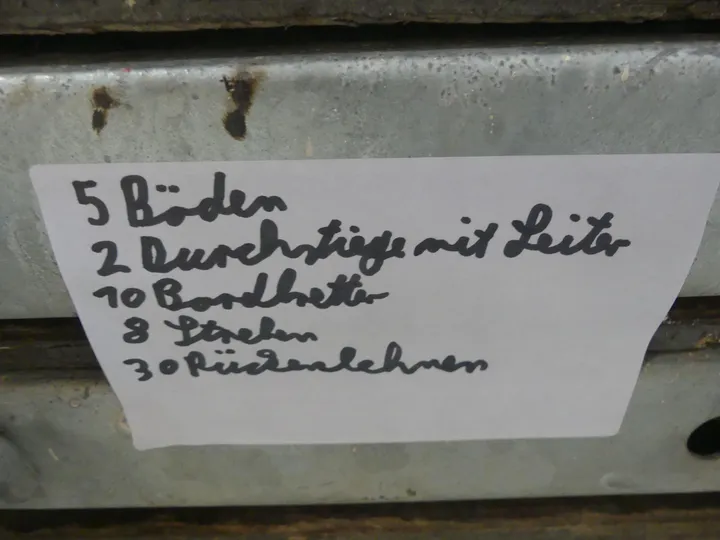 5 Böden
2 Durchstiege mit Leiter
10 Bordbretter
8 Streben
30 Rückenlehnen